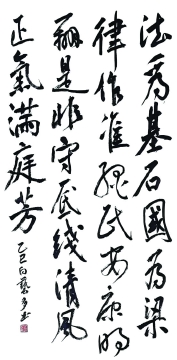 法為基石國為梁
律作准繩民安康明
辨是非守底綫清風
正氣滿庭芳
乙巳